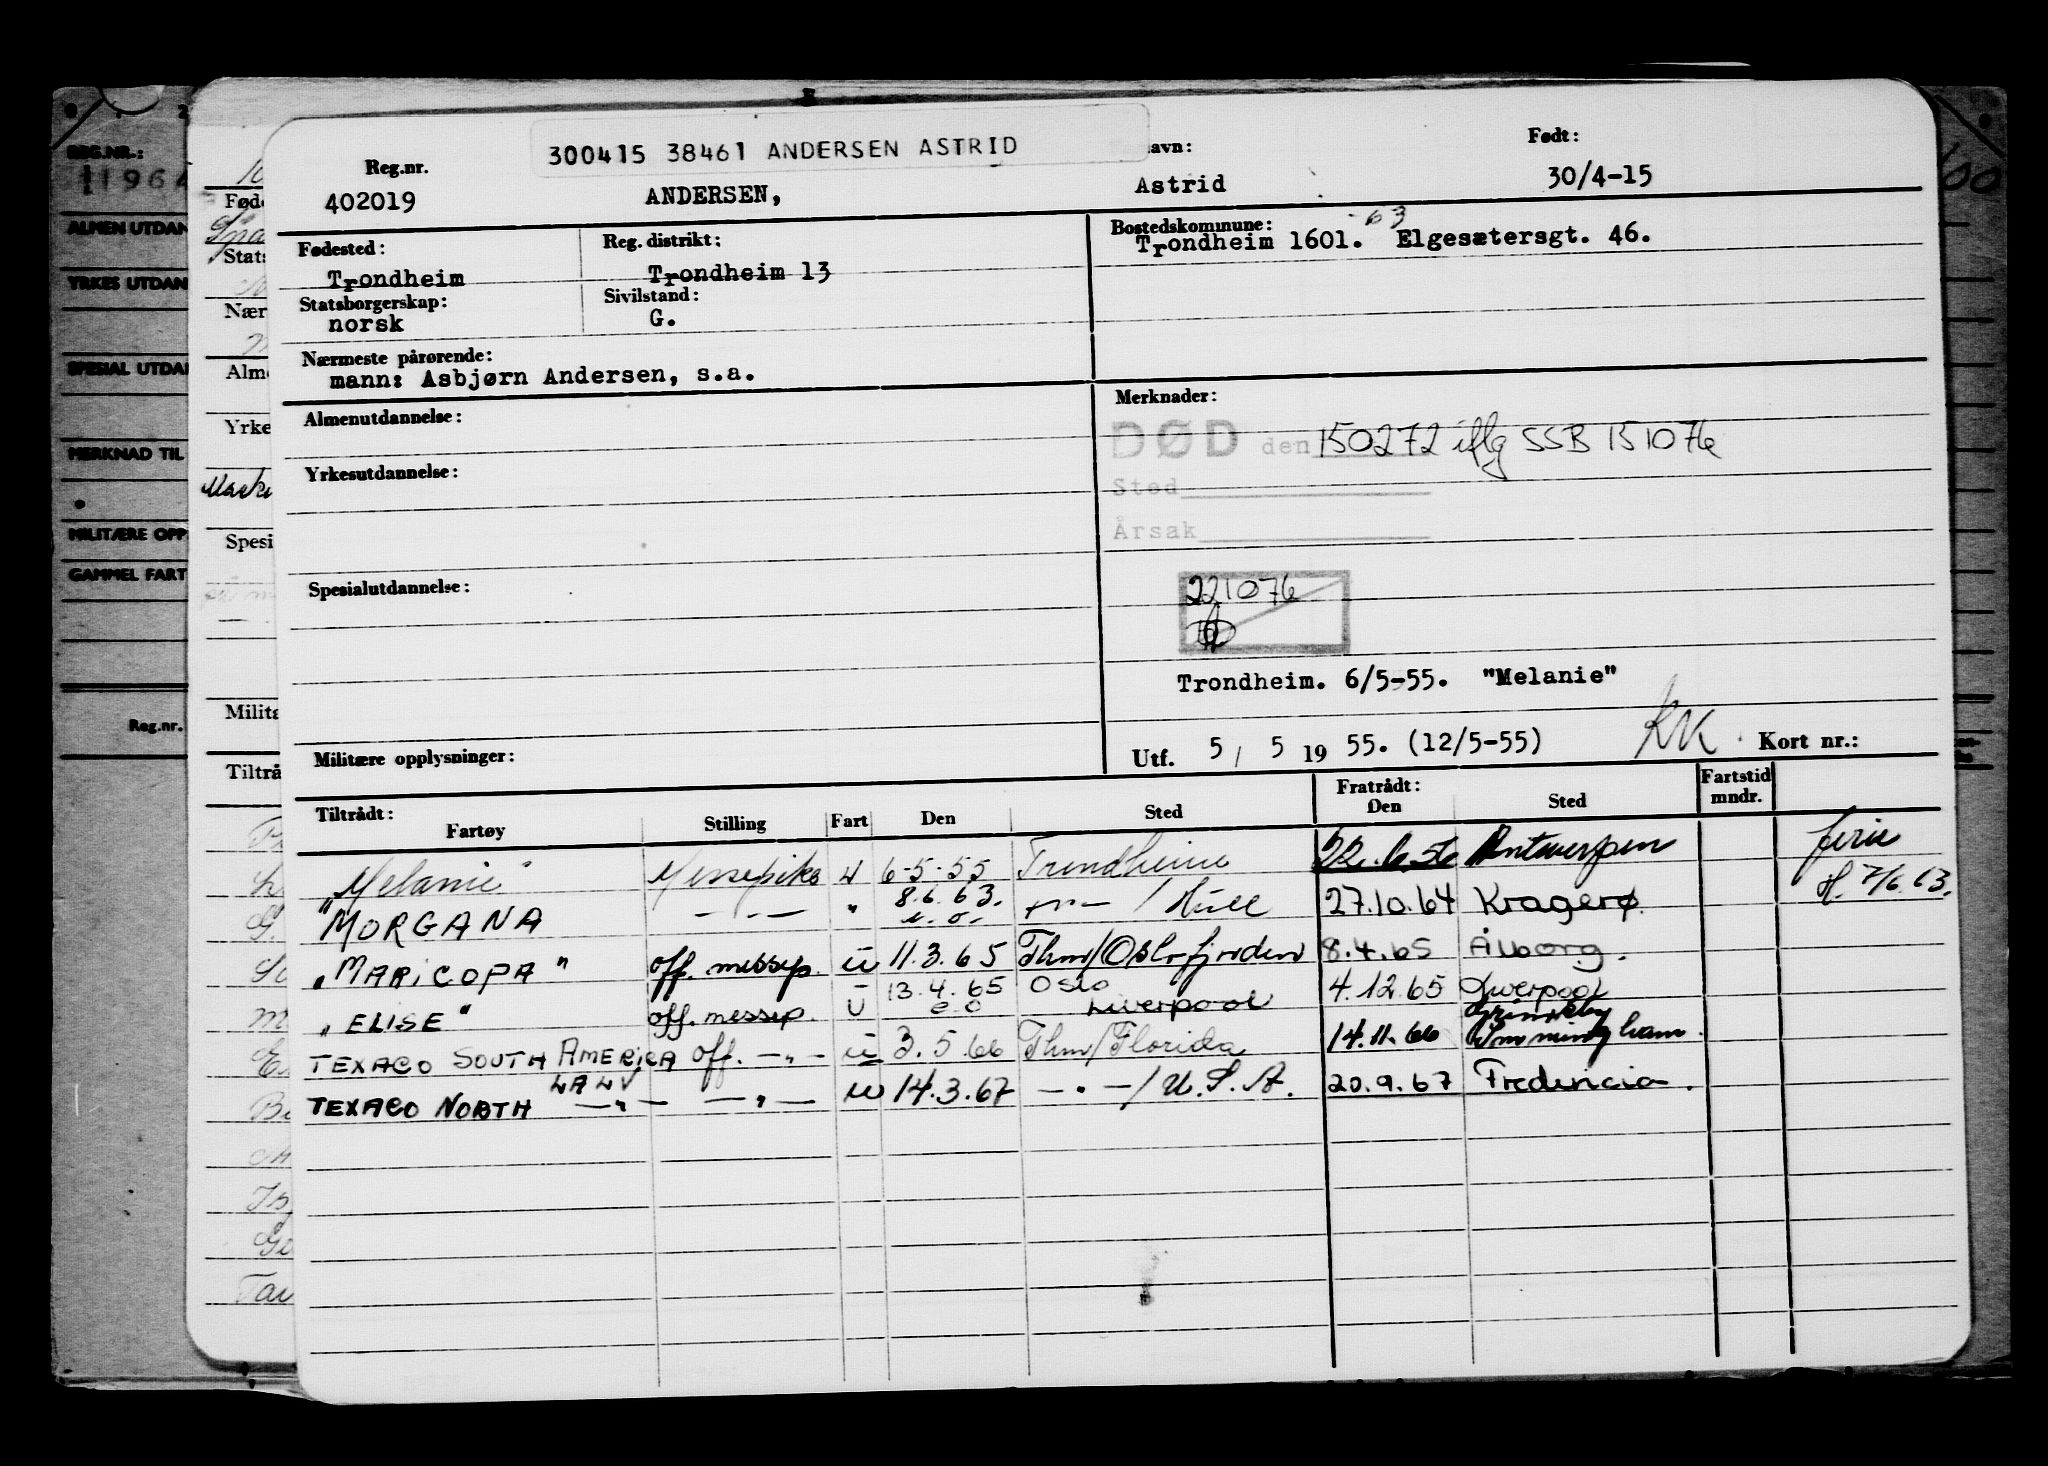 300415 38461 ANDERSEN ASTRID
Reg.nr. avn: Født:
402019 ANDERSEN, Astrid 30/4-15
Fødested: Reg. distrikt: Bostedskommune: -63
Trondheim Trondheim 13 Trondheim 1601. Elgesætersgt. 46.
Statsborgerskap: Sivilstand:
norsk G.
Nærmeste pårørende:
mann: Asbjørn Andersen, s.a.
Almenutdannelse: Merknader:
DØD den 150272 iflg SSB 151076
Yrkesutdannelse: Sted
Årsak
Spesialutdannelse: 221076
Trondheim. 6/5-55. "Melanie"
Militære opplysninger: Utf. 5 / 5 19 55. (12/5-55) KK Kort nr.:
Tiltrådt: Fratrådt: Fartstid
Fartøy Stilling Fart Den Sted Den Sted mndr.
"Melanie" Messepike u 6-5-55 Trondheim 22.6.56 Antwerpen ferie
MORGANA — " — " 8.6.63. — " — / Hull 27.10.64 Kragerø. 7/6.63.
u.o.
"MARICOPA" off. messep. u 11.3.65 Thm/Oslofjorden 8.4.65 Ålborg.
"ELISE" off. messep. U 13.4.65 Oslo 4.12.65 Liverpool
Liverpool
TEXACO SOUTH AMERICA off. — " — u 3.5.66 Thm/Florida 14.11.66 Grimsby Immingham.
LALV
TEXACO NORTH — " — — " — u 14.3.67 — " — / U.S.A. 20.9.67 Fredericia.
REG.NR.:
11964
ALMEN UTDAN
YRKES UTDAN
SPESIAL UTDAN
MERKNAD TIL
MILITÆRE OPP
GAMMEL FART
Reg.nr.
Føde
Stats
Nær
Alme
Yrke
Maski
Spesi
Milita
Tiltrå